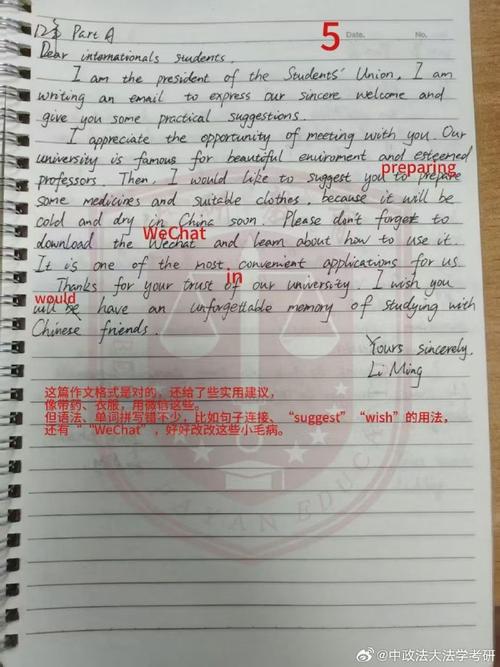 12 Part A
5
Date.
No.
Dear internationals students,
I am the president of the Students' Union, I am
writing an email to express our sincere welcome and
give you some practical suggestions.
I appreciate the opportunity of meeting with you. Our
university is famous for beautiful enviroment and esteemed
preparing
professors. Then, I would like to suggest you to prepare
some medicines and suitable clothes, because it will be
cold and dry in China soon. Please don't forget to
WeChat
download the Wechat and learn about how to use it.
It is one of the most convenient applications for us.
in
Thanks for your trust of our university. I wish you
would
will be have an unforgettable memory of studying with
Chinese friends.
Yours sincerely,
Li Ming
这篇作文格式是对的，还给了些实用建议，
像带药、衣服，用微信这些。
但语法、单词拼写错不少，比如句子连接、“suggest”“wish”的用法，
还有““WeChat”，好好改改这些小毛病。
LAYAN EDUCAT
@中政法大法学考研